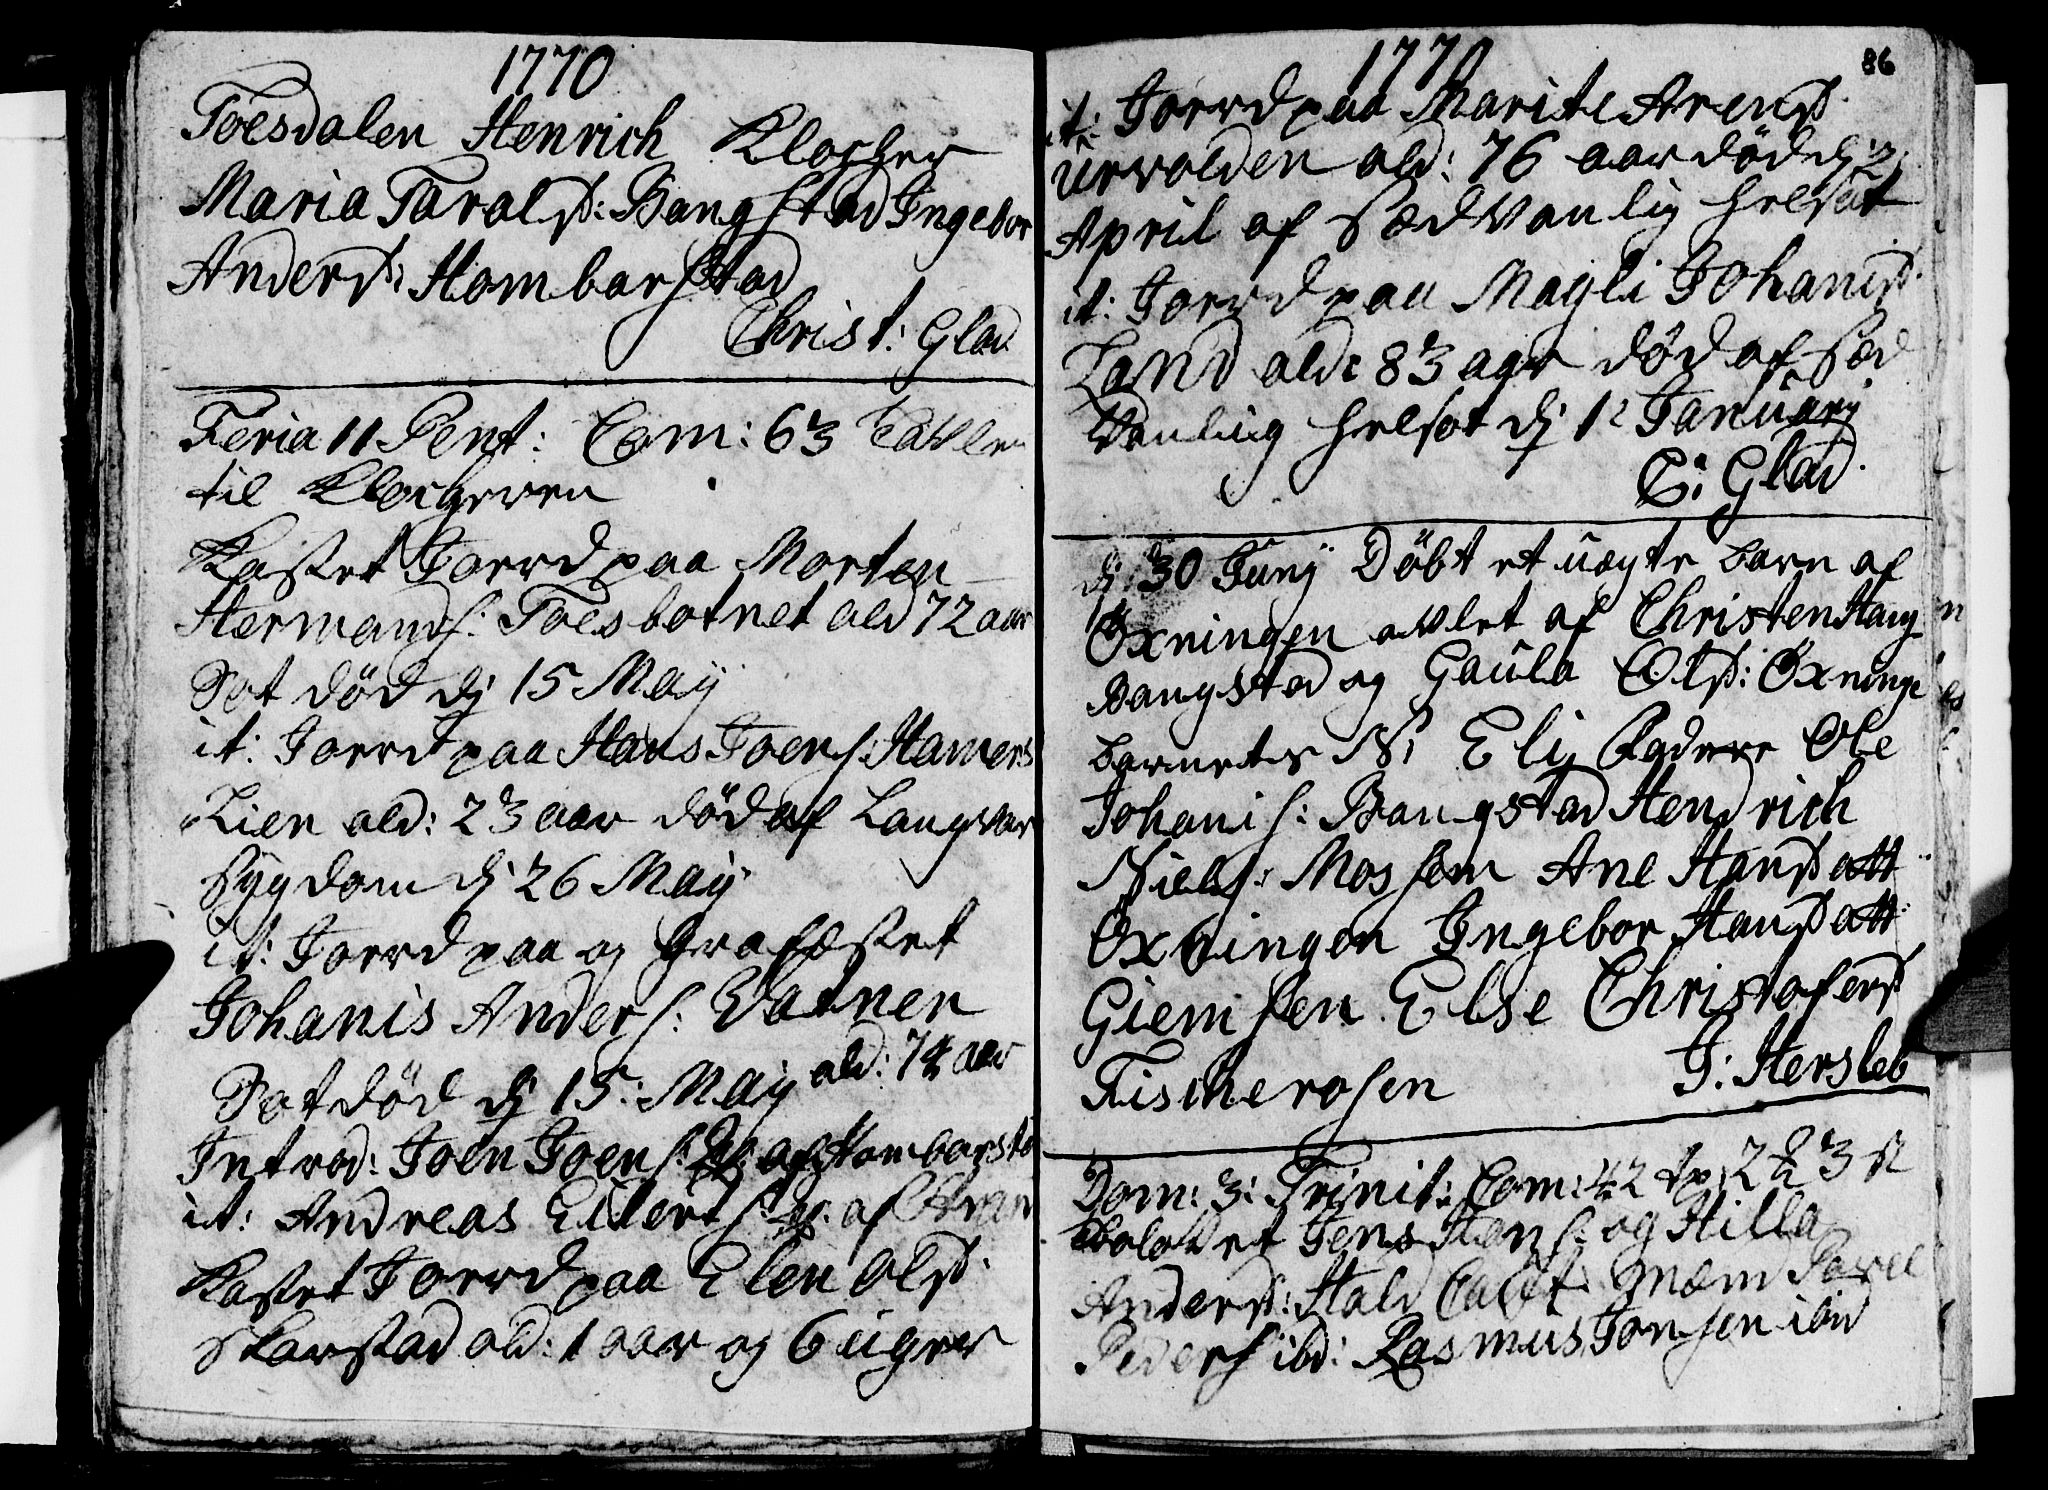 1770
Foesdalen Henrich Klocher
Maria Taralsd: Bangstad Ingebor
Andersd: Hombarstad
Christ: Glad
Feria 11 Pent: Com: 63
til Klocheren
Kastet Joerd paa Morten
Hermands: Foesbotnet ald 72 aar
Sot död dj 15 Maij
it: Joerd paa Hans Joens Hamers
Lien ald: 23 aar död af Langvar
Sygdom dj 26 Maij
it: Joerd paa og Grafæstet
Johanis Anders: Vatnen
ald: 74 aar
Sot död dj 15: Maij
Introd: Joen Joens: af Hombarsta
it: Andreas Eilerts: af
Kastet Joerd paa Elen Olsd:
Skarstad ald: 1 aar og 6 uger
1770
86
it: Joerd paa Marite Arensd:
Urvolden ald: 76 aar död dj 2
April af Sædvanlig helsot
it: Joerd paa Magli Johanisd:
Land ald: 83 aar död af Sæd
Vanlig helsot dj 12 Januarij
C: Glad
dj 30 Junij Döbt et uægte barn af
Öxningen avlet af Christen Hang
Bangstad og Gaula Olsd: Öxninge
barnets N: Elj Fadere Ole
Johanis: Bangstad Hendrich
Niels: Mossem Ane Hansdatt
Öxningen Ingebor Hansdatt:
Giemsen Else Christofersd
Fischerosen J: Hersleb
Dom: 3: Trinit: Com: 42
Jens Hans: og Hilla
Andersd: Hald Caut: Povel
Peders ibd: Rasmus Jonsen ibid